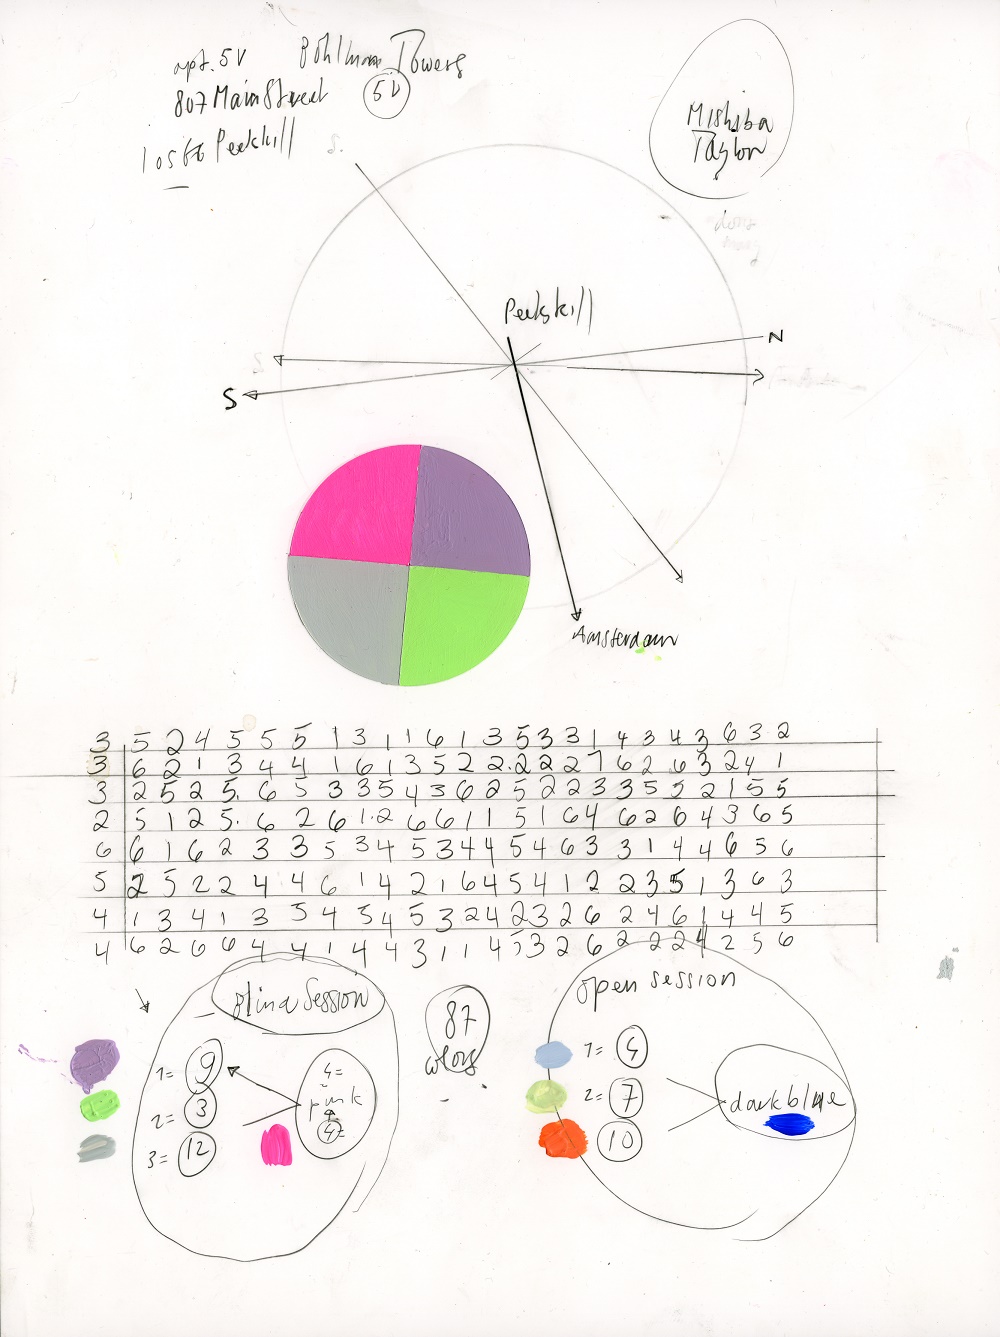 apt. 5V Bohlman Towers
807 Main Street 5V
Peekskill
Mishiba
Taylor
S.
Peekskill
N
S
S
Amsterdam
3 5 2 4 5 5 5 1 3 1 1 6 1 3 5 3 3 1 4 3 4 3 6 3 2
3 6 2 1 3 4 4 1 6 1 3 5 2 2.2 2 2 7 6 2 6 3 2 4 1
3 2 5 2 5. 6 5 3 3 5 4 3 6 2 5 2 2 3 3 5 2 2 1 5 5
2 5 1 2 5. 6 2 6 1.2 6 6 1 1 5 1 6 4 6 2 6 4 3 6 5
6 6 1 6 2 3 3 5 3 4 5 3 4 4 5 4 6 3 3 1 4 4 6 5 6
5 2 5 2 2 4 4 6 1 4 2 1 6 4 5 4 1 2 2 3 5 1 3 6 3
4 1 3 4 1 3 5 4 5 4 5 3 2 4 2 3 2 6 2 4 6 1 4 4 5
4 6 2 6 6 4 4 1 4 4 3 1 1 4 5 3 2 6 2 2 2 4 2 5 6
Blind Session
1= 9
2= 3
3= 12
4=
pink
4=
87
colors.
open session
1= 4
2= 7
10
dark blue